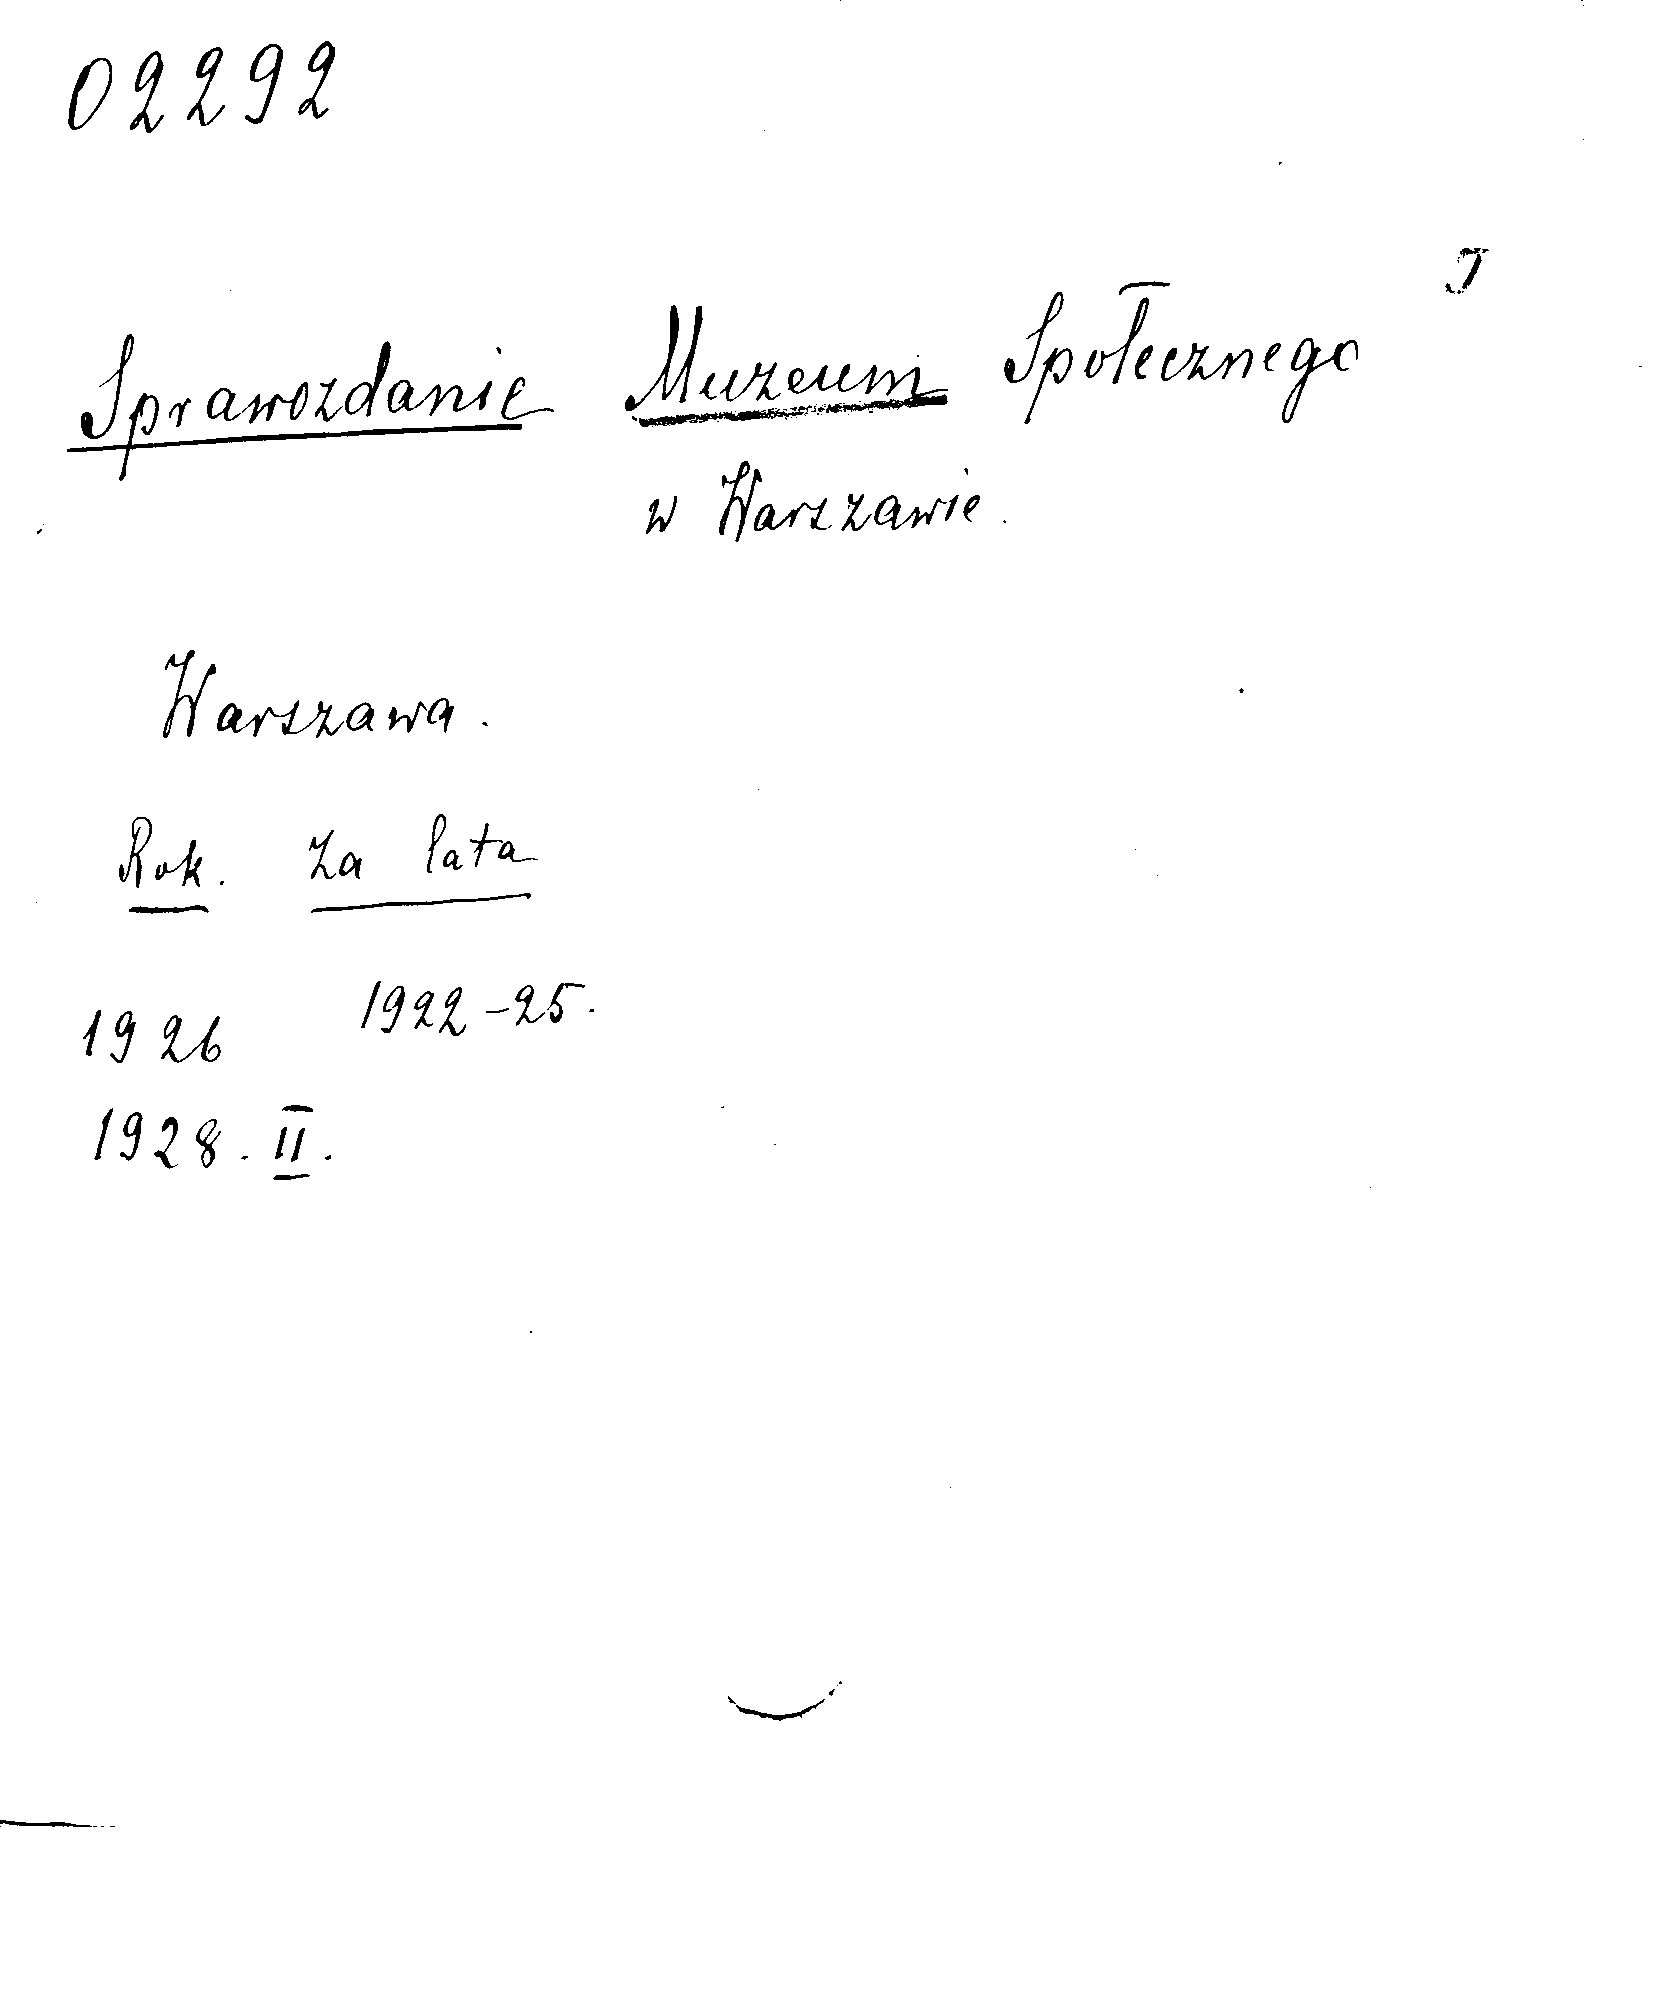 02292
J
Sprawozdanie Muzeum Społecznego
w Warszawie.
Warszawa.
Rok. Za lata
1926 1922-25.
1928. II.